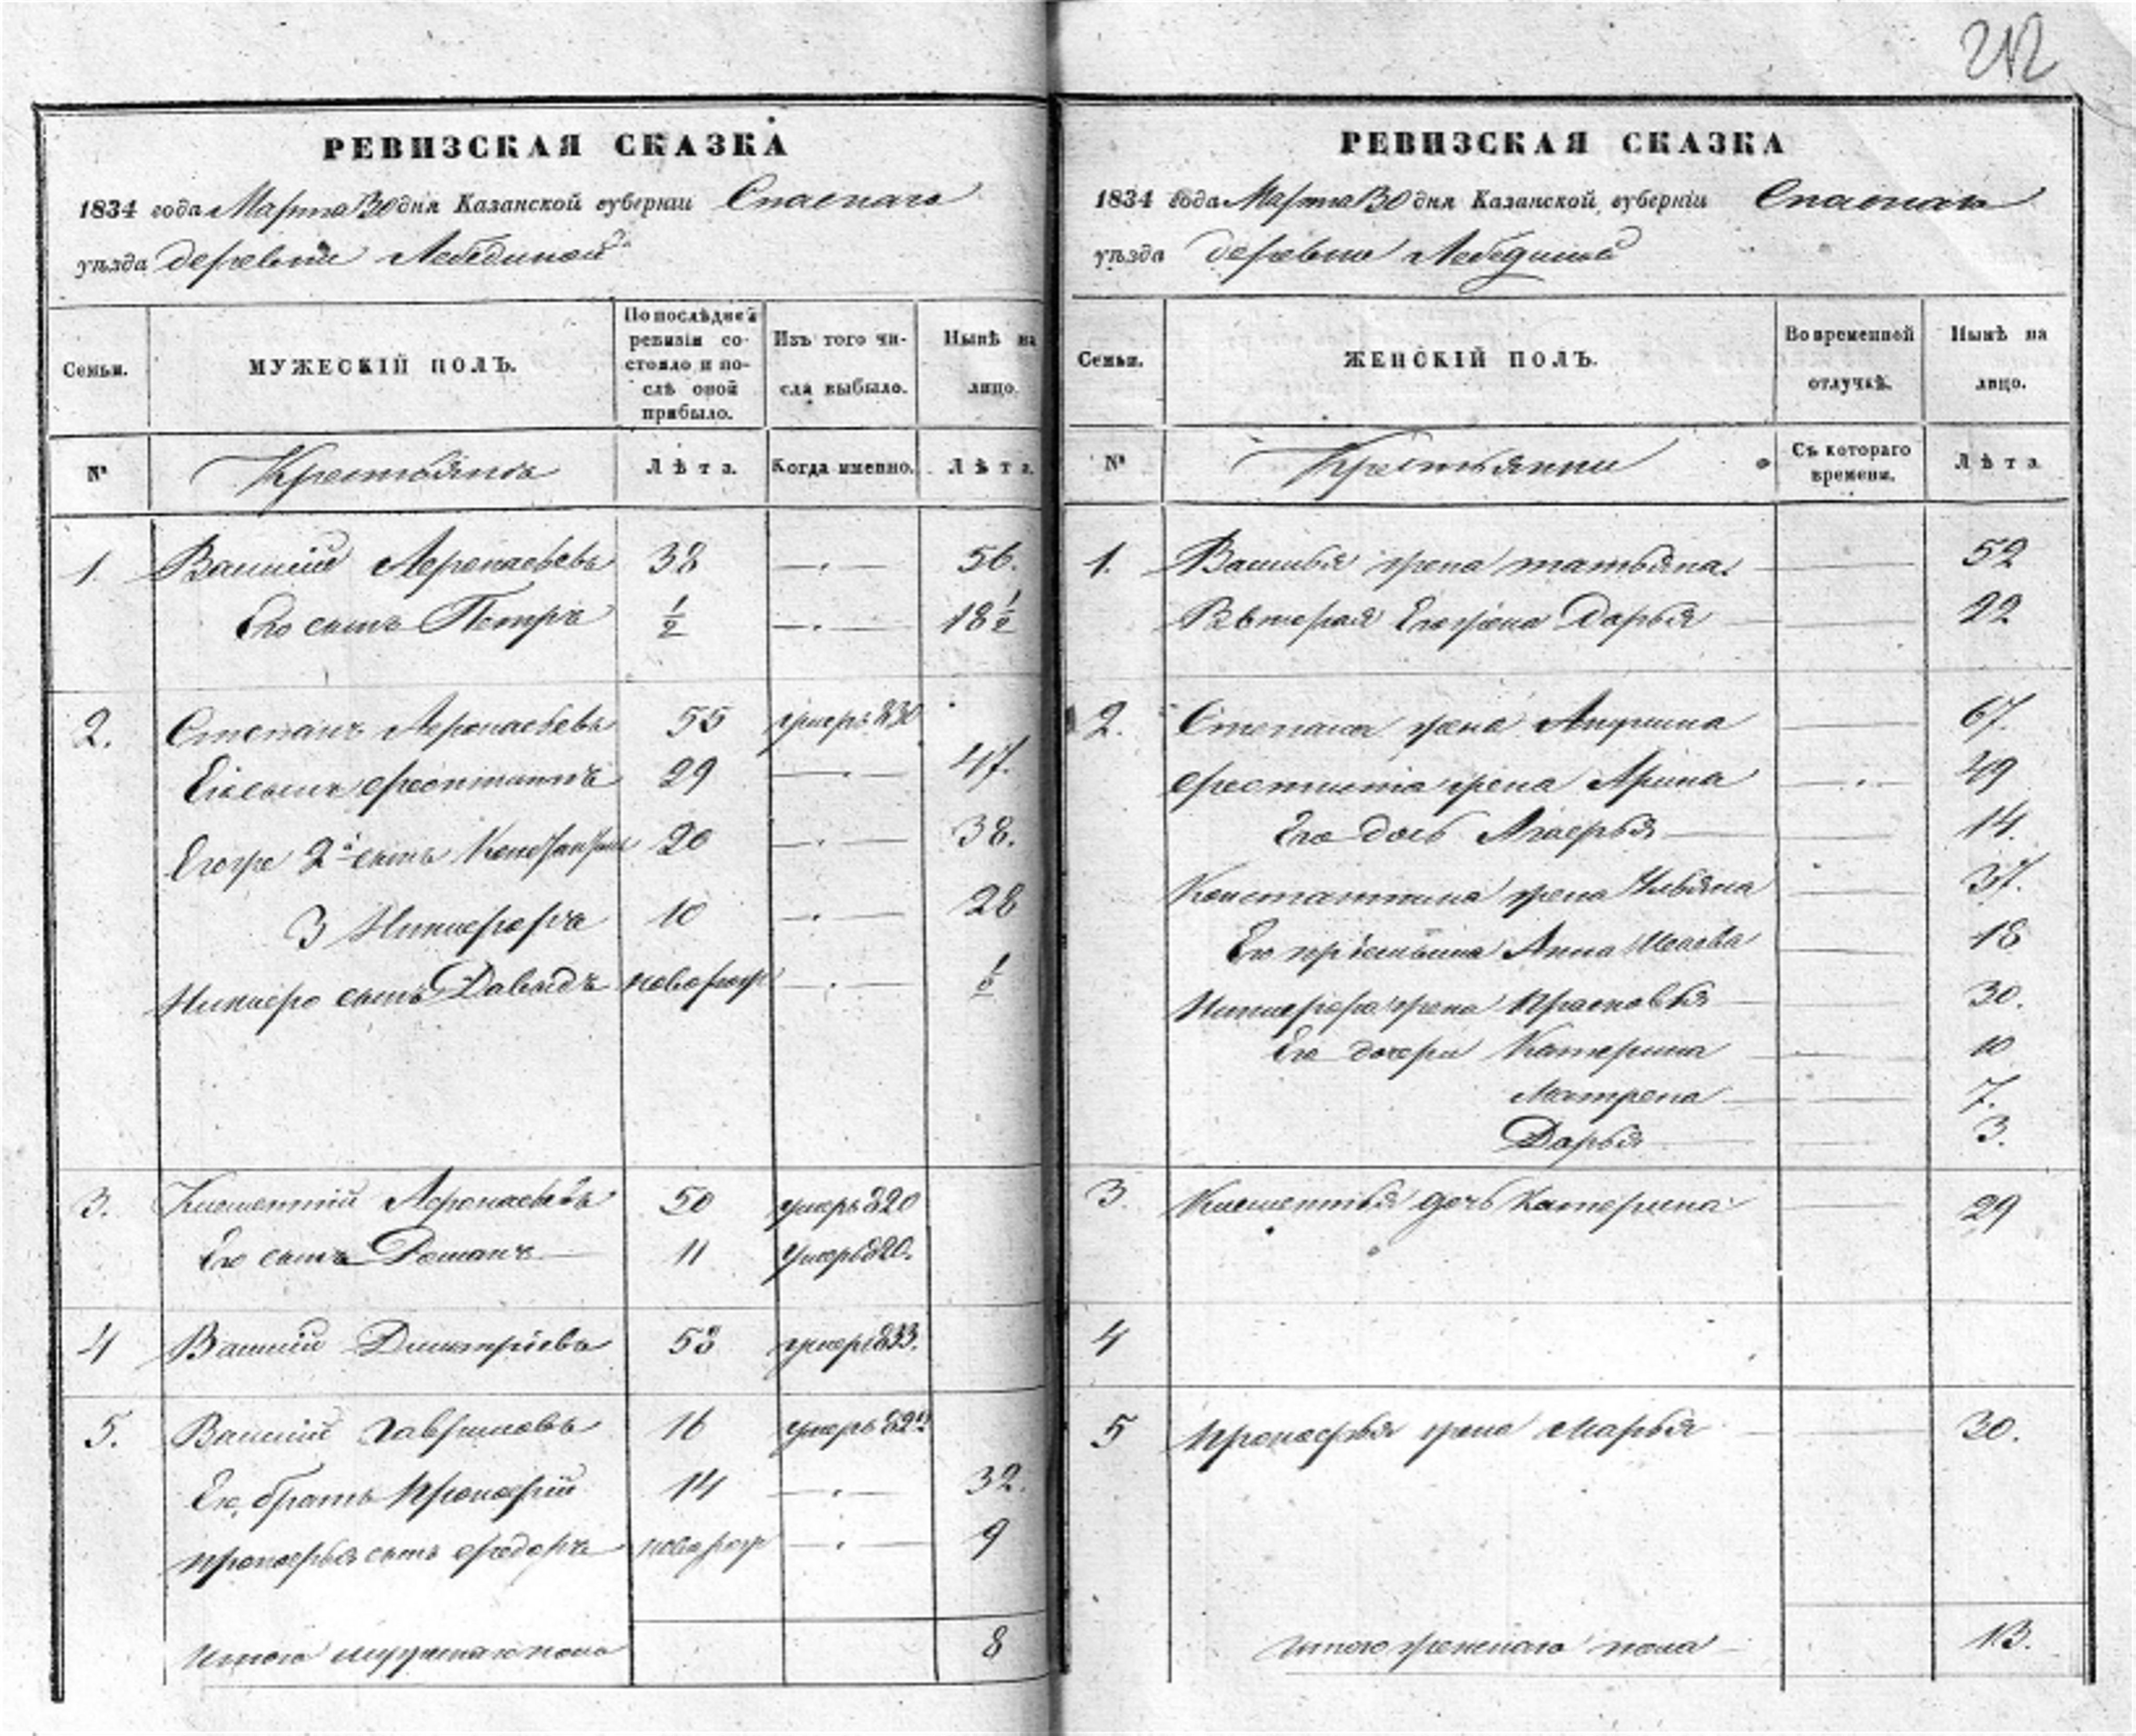 212
РЕВИЗСКАЯ СКАЗКА
1834 года Марта 30 дня Казанской губерніи Спаскаго
уѣзда деревни Лебединой
Семьи.
МУЖЕСКІЙ ПОЛЪ.
По послѣдней ревизіи состояло и послѣ оной прибыло.
Изъ того числа выбыло.
Нынѣ на лицо.
№
Крестьянъ
Лѣта.
Когда именно.
Лѣта.
1 Василій 38 56.
Его сынъ Петръ 1/2 18 1/2
2. Степанъ 55 умеръ 830
Его сынъ 29 47.
Егоже 2й сынъ 20 38.
3 Никифоръ 10 28
сынъ Давыдъ новорож
3. 50 умеръ 820
Его сынъ Романъ 11 умеръ 820.
4 Василій Дмитріевъ 53 умеръ 833.
5. Василій Гавриловъ 16 умеръ
Его братъ Прокофій 14 32.
Прокофья сынъ Федоръ новорож 9
Итого мужеска пола 8
РЕВИЗСКАЯ СКАЗКА
1834 года Марта 30 дня Казанской губерніи Спаскаго
уѣзда деревни Лебединой
Семьи.
ЖЕНСКІЙ ПОЛЪ.
Во временной отлучкѣ.
Нынѣ на лицо.
№
Съ котораго времени.
Лѣта
1. Василья жена татьяна. 52
Его жена Дарья 22
2. Степана жена 67.
жена Арина 49
Его дочь 14.
Константина жена Ульяна 37.
Его Анна 18
Никифора жена Прасковья 30.
Его дочери Катерина 10
Матрена 7.
Дарья 3.
3. дочь Катерина 29
4
5 Прокофья жена Марья 30.
Итого женскаго пола 13.